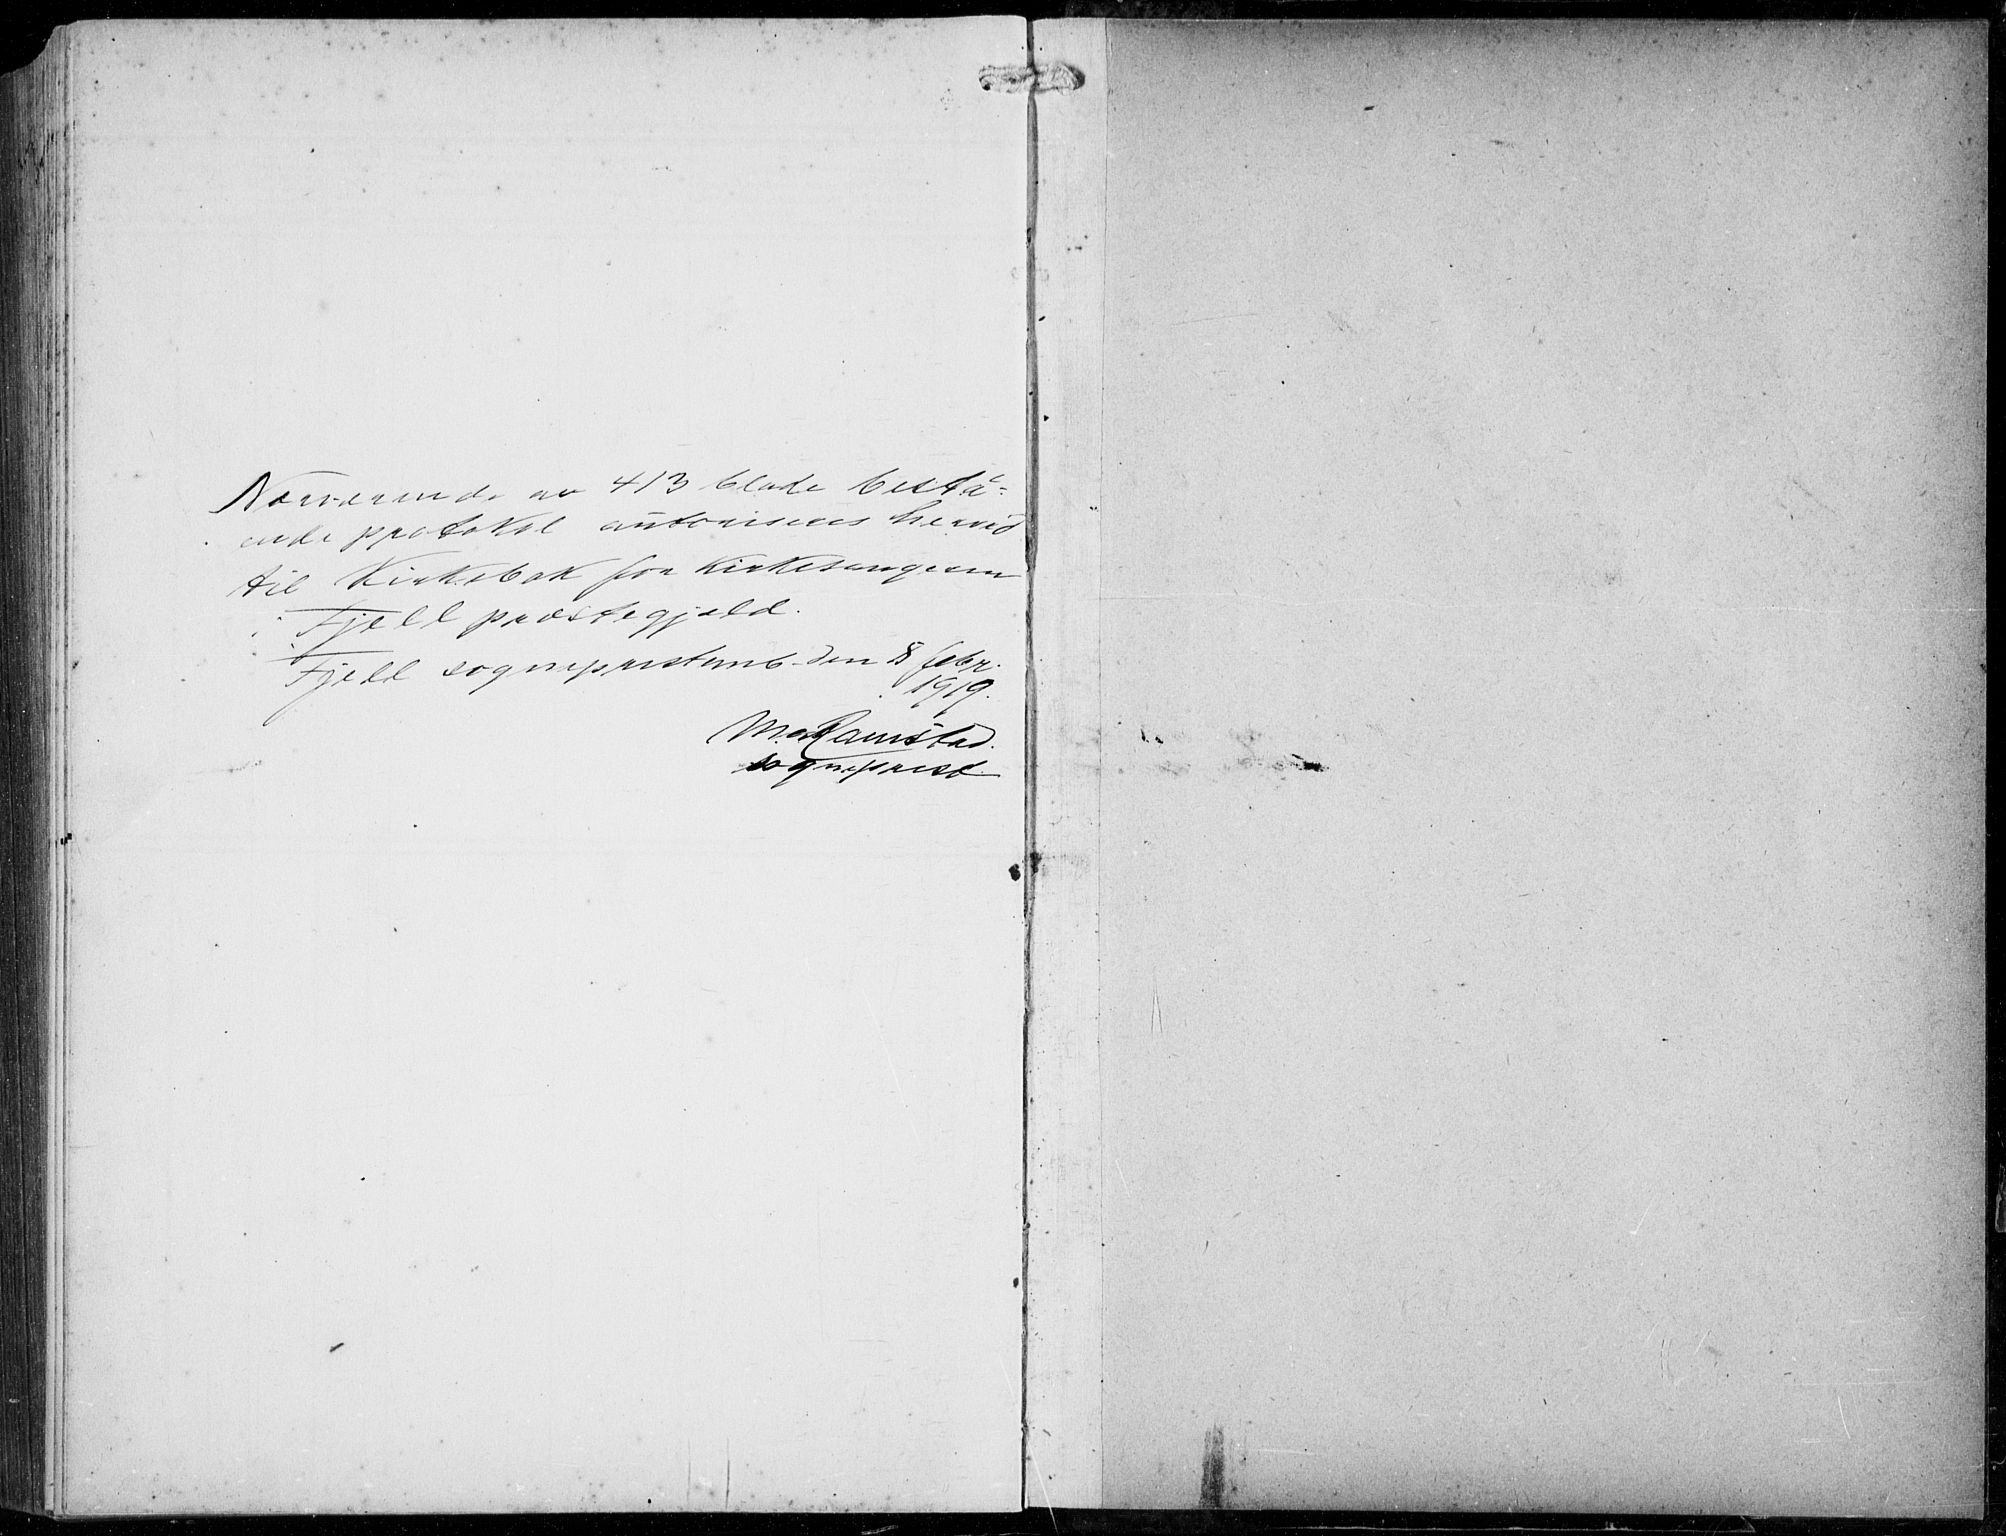 Nærværende av 413 blade bestå-
ende protokol autoriseres herved
til Kirkebok for kirkesangeren
i Fjell prestegjeld.
Fjell sogneprestemb. den 8 febr.
1919.
M. Ramstad.
sogneprest